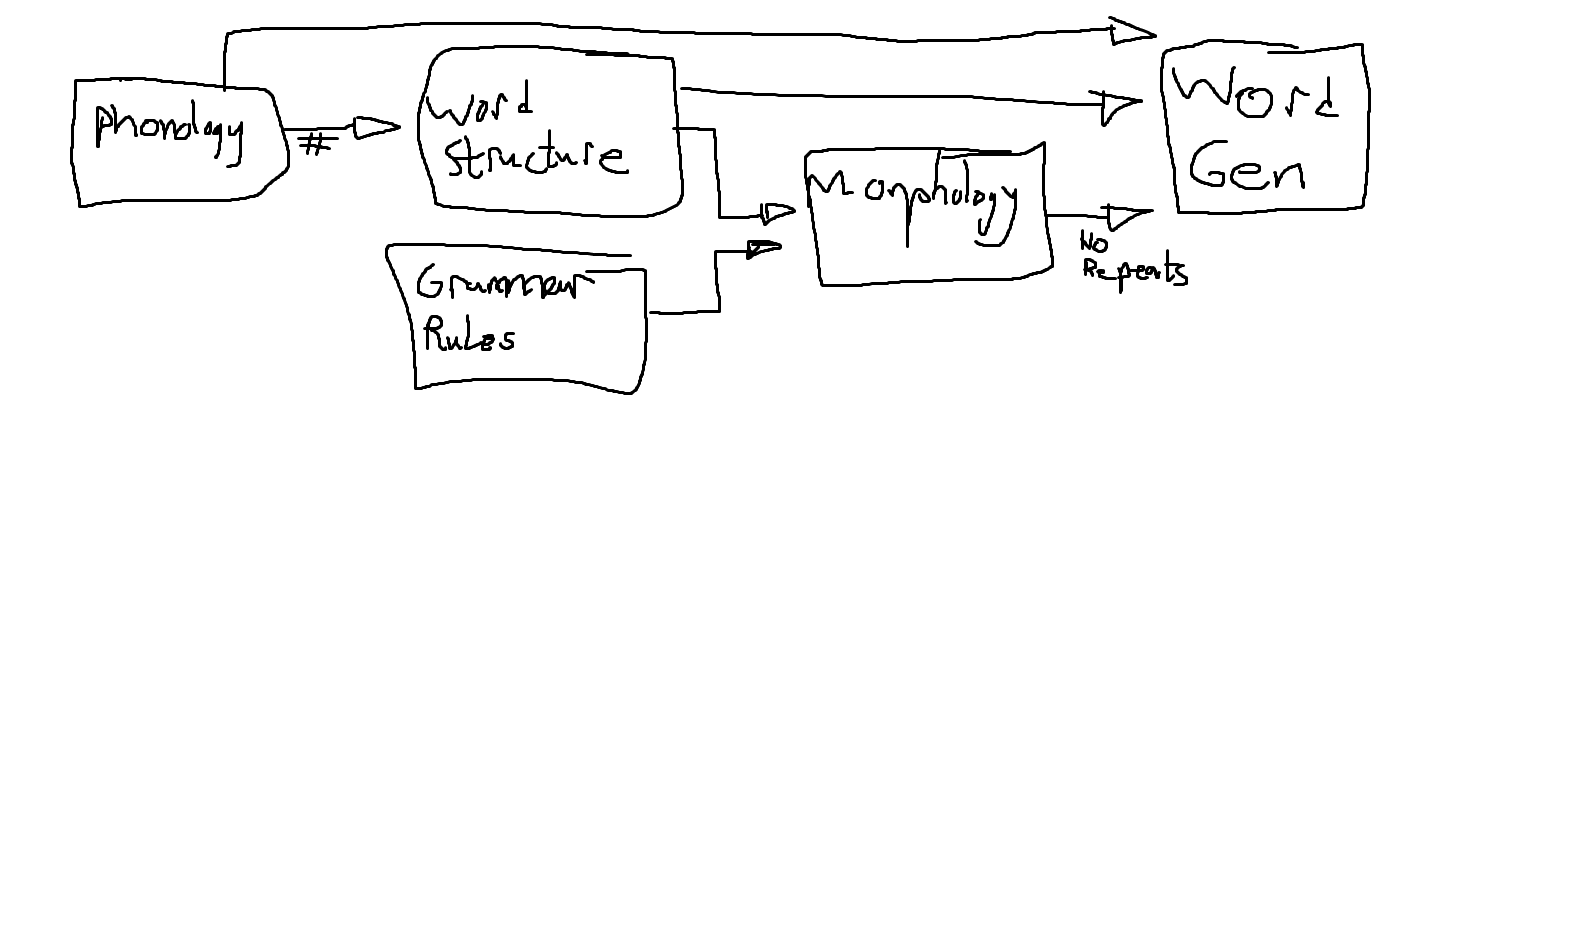 Phonology
#
Word
Structure
Grammer
Rules
Morphology
No
Repeats
Word
Gen